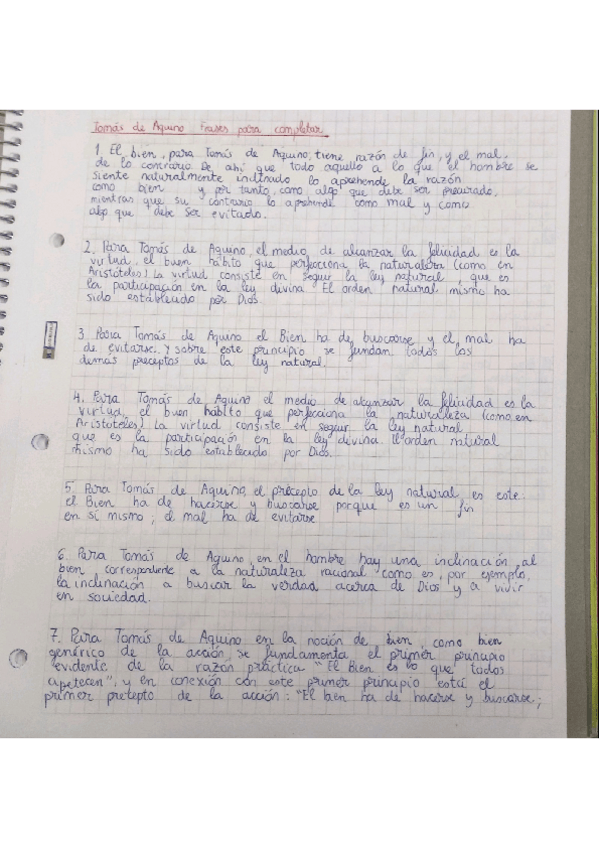 Tomás de Aquino Frases para completar
1. El bien, para Tomás de Aquino, tiene razón de fin, y el mal,
de lo contrario. De ahí que todo aquello a lo que el hombre se
siente naturalmente inclinado lo aprehende la razón
como bien y por tanto, como algo que debe ser procurado,
mientras que su contrario lo aprehende como mal y como
algo que debe ser evitado.
2. Para Tomás de Aquino, el medio de alcanzar la felicidad es la
virtud, el buen hábito que perfecciona la naturaleza (como en
Aristóteles). La virtud consiste en seguir la ley natural, que es
la participación en la ley divina. El orden natural mismo ha
sido establecido por Dios.
3. Para Tomás de Aquino el Bien ha de buscarse y el mal ha
de evitarse. Y sobre este principio se fundan todos los
demás preceptos de la ley natural.
4. Para Tomás de Aquino el medio de alcanzar la felicidad es la
virtud, el buen hábito que perfecciona la naturaleza (como en
Aristóteles). La virtud consiste en seguir la ley natural
que es la participación en la ley divina. El orden natural
mismo ha sido establecido por Dios.
5. Para Tomás de Aquino, el precepto de la ley natural es este
el Bien ha de hacerse y buscarse porque es un fin
en sí mismo; el mal ha de evitarse
6. Para Tomás de Aquino, en el hombre hay una inclinación al
bien correspondiente a la naturaleza racional como es, por ejemplo,
la inclinación a buscar la verdad acerca de Dios y a vivir
en sociedad.
7. Para Tomás de Aquino en la noción de bien, como bien
genérico de la acción, se fundamenta el primer principio
evidente de la razón práctica "El Bien es lo que todos
apetecen", y en conexión con este primer principio está el
primer pretepto de la acción: "El bien ha de hacerse y buscarse;